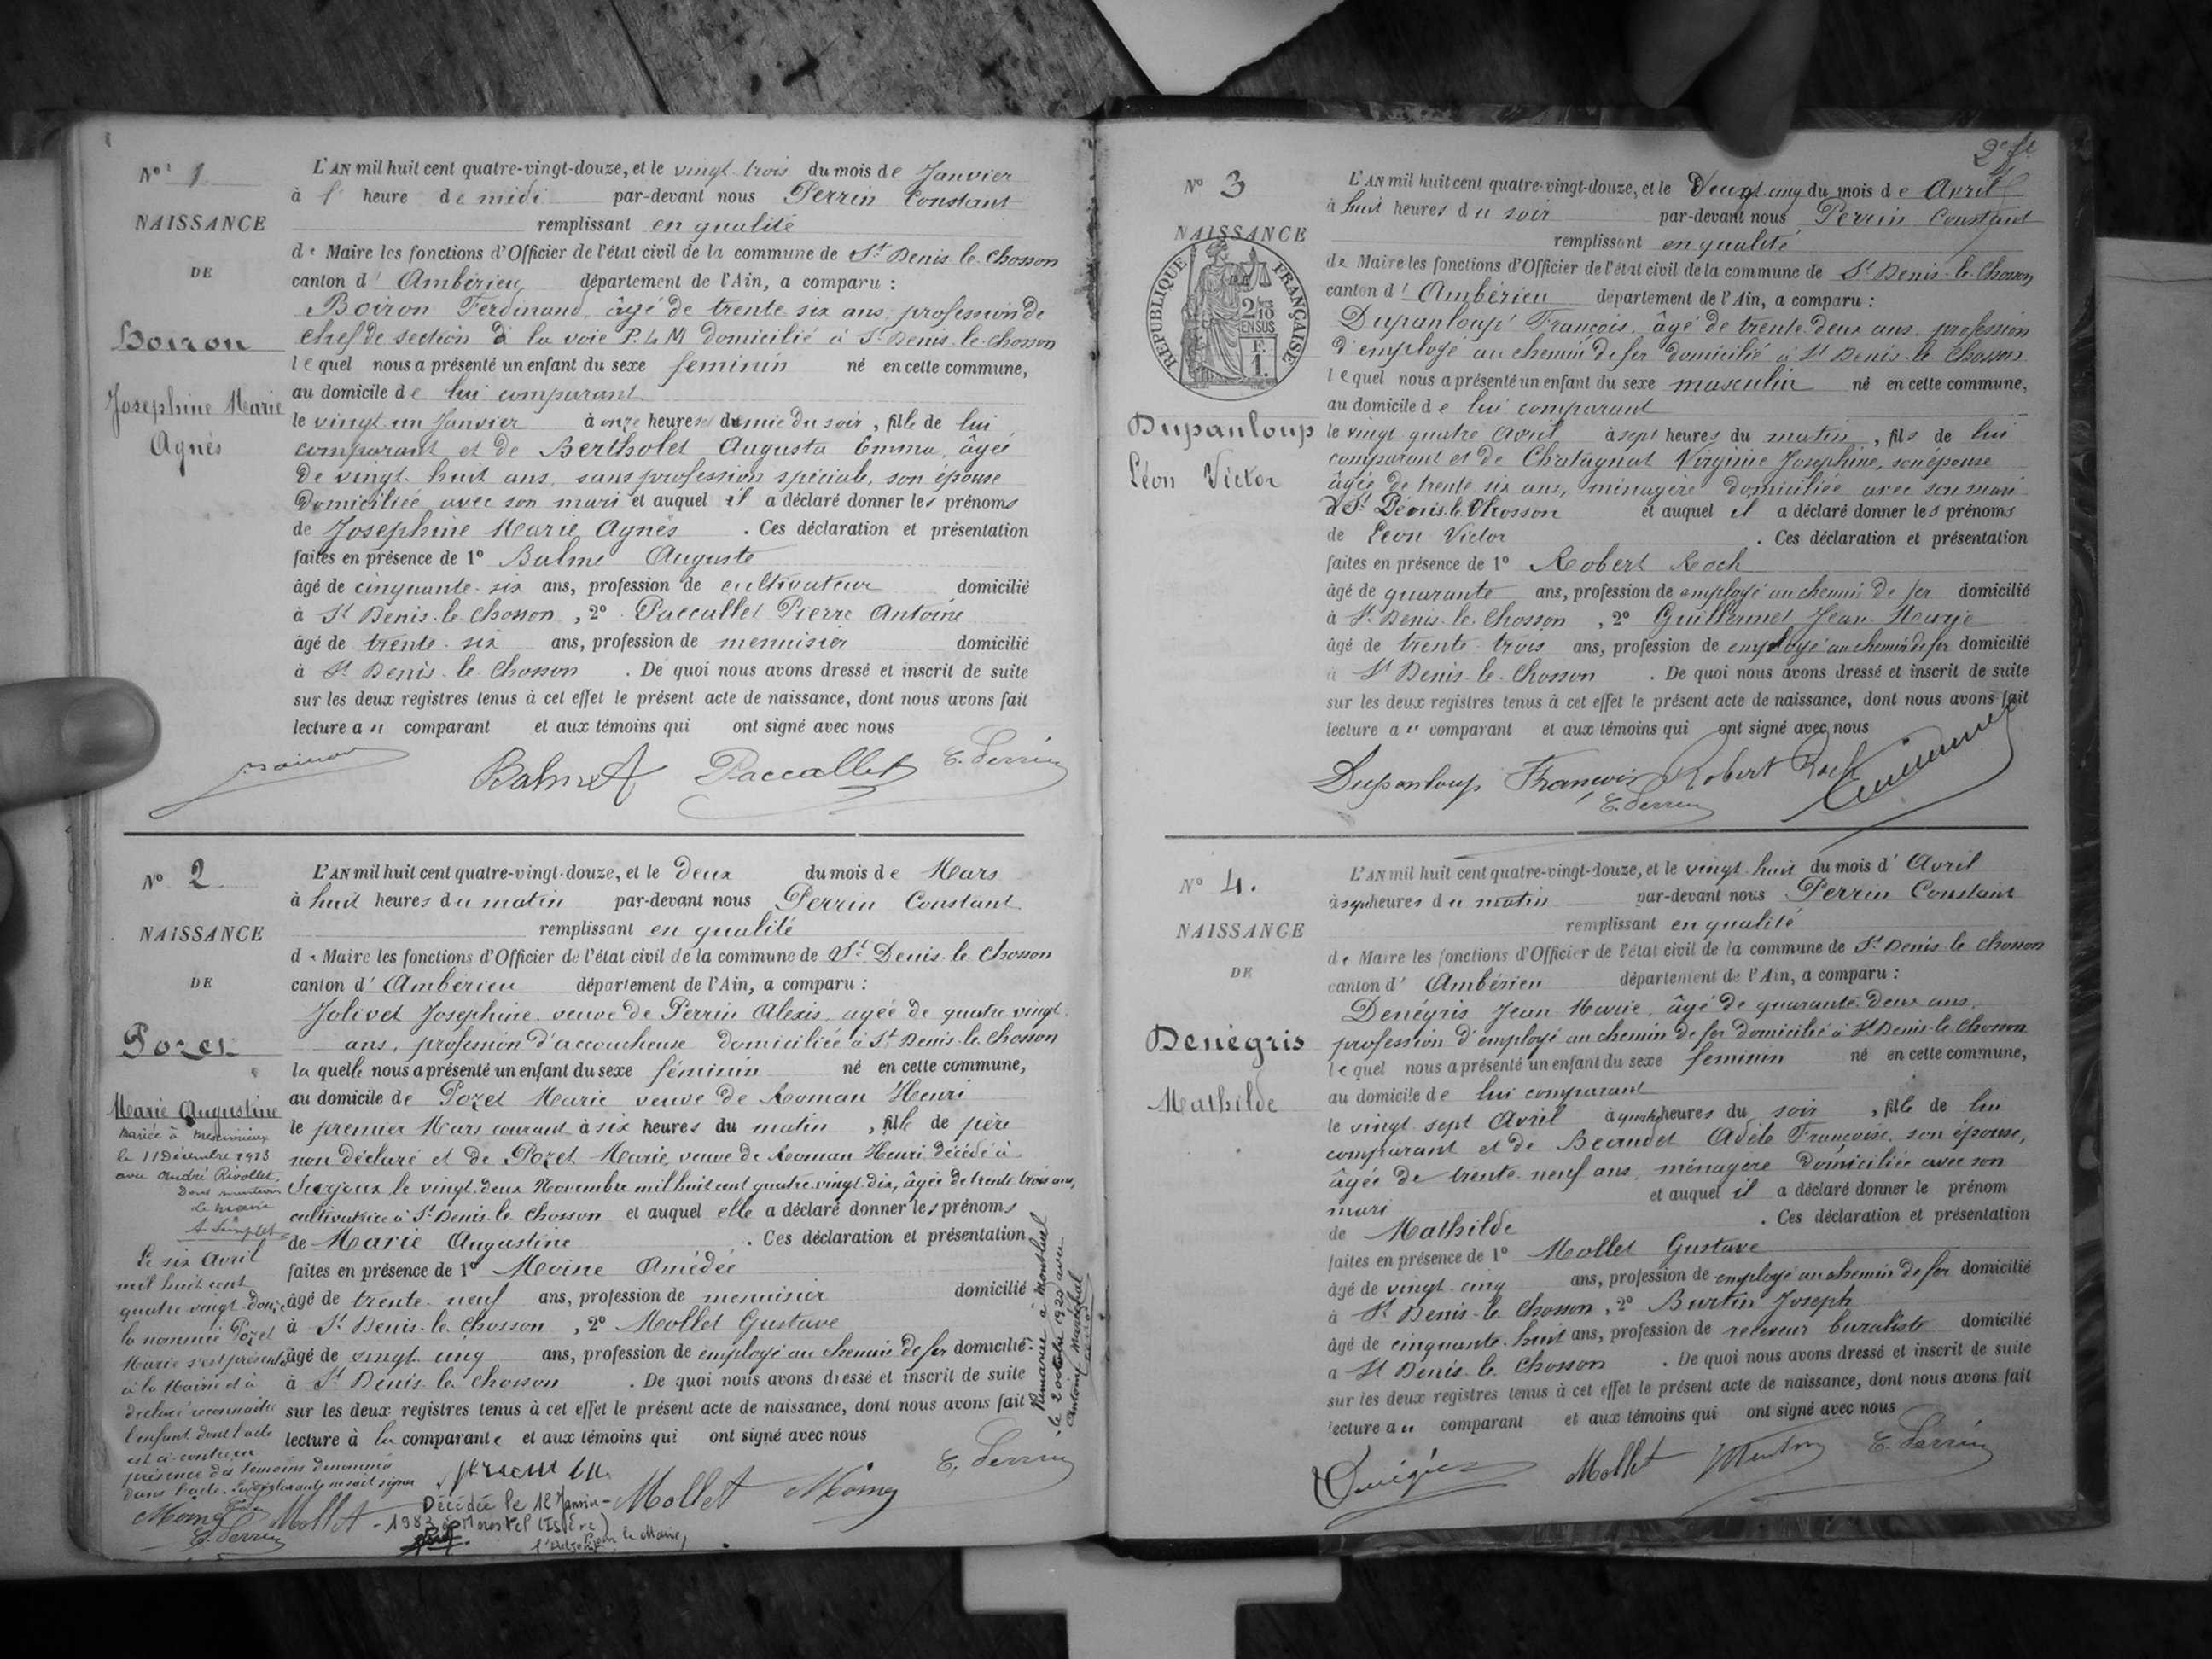 N° 1
NAISSANCE
DE
Boiron
Josephine Marie
Agnès
L'AN mil huit cent quatre-vingt-douze, et le vingt trois du mois de Janvier
à l' heure de midi par-devant nous Perrin Constant
remplissant en qualité
de Maire les fonctions d'Officier de l'état civil de la commune de St Denis le Chosson
canton d' Ambérieu département de l'Ain, a comparu :
Boiron Ferdinand, âgé de trente six ans, profession de
chef de section à la voie P. L. M domicilié à St Denis-le-Chosson
lequel nous a présenté un enfant du sexe feminin né en cette commune,
au domicile de lui comparant
le vingt un Janvier à onze heures demie du soir, fille de lui
comparant et de Bertholet Augusta Emma, âgée
de vingt-huit ans, sans profession spéciale, son épouse
domiciliée avec son mari et auquel il a déclaré donner les prénoms
de Josephine Marie Agnès . Ces déclaration et présentation
faites en présence de 1° Balme Auguste
âgé de cinquante-six ans, profession de cultivateur domicilié
à St Denis-le-Chosson, 2° Paccallet Pierre Antoine
âgé de trente-six ans, profession de menuisier domicilié
à St Denis-le-Chosson . De quoi nous avons dressé et inscrit de suite
sur les deux registres tenus à cet effet le présent acte de naissance, dont nous avons fait
lecture au comparant et aux témoins qui ont signé avec nous
Boiron Balme A Paccallet C. Perrin
N° 2
NAISSANCE
DE
Pozet
Marie Augustine
mariée à Meximieux
le 11 Décembre 1913
avec André Rivollet,
Dont mention
Le Maire
Le six Avril
mil huit cent
quatre vingt-douze
la nommée Pozet
Marie s'est présentée
à la Mairie et a
déclaré reconnaître
l'enfant dont l'acte
est ci-contre en
présence des témoins dénommés
dans l'acte. La déclarante ne sait signer
Moine Mollet
C. Perrin
L'AN mil huit cent quatre-vingt-douze, et le deux du mois de Mars
à huit heures du matin par-devant nous Perrin Constant
remplissant en qualité
de Maire les fonctions d'Officier de l'état civil de la commune de St Denis-le-Chosson
canton d' Ambérieu département de l'Ain, a comparu :
Jolivet Josephine, veuve de Perrin Alexis, agée de quatre vingt
ans, profession d'accoucheuse domiciliée à St Denis-le-Chosson
laquelle nous a présenté un enfant du sexe féminin né en cette commune,
au domicile de Pozet Marie veuve de Roman Henri
le premier Mars courant à six heures du matin, fille de père
non déclaré et de Pozet Marie, veuve de Roman Henri, décédé à
Surjoux le vingt-deux Novembre mil huit cent quatre-vingt-dix, âgée de trente trois ans,
cultivatrice à St Denis-le-Chosson et auquel elle a déclaré donner les prénoms
de Marie Augustine . Ces déclaration et présentation
faites en présence de 1° Moine Amédée
âgé de trente-neuf ans, profession de menuisier domicilié
à St Denis-le-Chosson, 2° Mollet Gustave
âgé de vingt-cinq ans, profession de employé au chemin de fer domicilié
à St Denis-le-Chosson . De quoi nous avons dressé et inscrit de suite
sur les deux registres tenus à cet effet le présent acte de naissance, dont nous avons fait
lecture à la comparante et aux témoins qui ont signé avec nous
Mollet Moine C. Perrin
Remariée à Montluel
le 2 octobre 1920 avec
Antoine Maréchal
Décédée le 12 Janvier
1983 à Morestel (Isère)
Pour le Maire,
l'Adjoint
2e ft
N° 3
NAISSANCE
RÉPUBLIQUE FRANÇAISE
2/10 EN SUS
F. 1.
Dupanloup
Léon Victor
L'AN mil huit cent quatre-vingt-douze, et le vingt-cinq du mois de Avril
à huit heures du soir par-devant nous Perrin Constant
remplissant en qualité
de Maire les fonctions d'Officier de l'état civil de la commune de St Denis-le-Chosson
canton d' Ambérieu département de l'Ain, a comparu :
Dupanloup François, âgé de trente deux ans, profession
d'employé au chemin de fer domicilié à St Denis-le-Chosson
lequel nous a présenté un enfant du sexe masculin né en cette commune,
au domicile de lui comparant
le vingt quatre Avril à sept heures du matin, fils de lui
comparant et de Chatagnat Virginie Josephine, son épouse
âgée de trente six ans, ménagère domiciliée avec son mari
à St Denis-le-Chosson et auquel il a déclaré donner les prénoms
de Léon Victor . Ces déclaration et présentation
faites en présence de 1° Robert Roch
âgé de quarante ans, profession de employé au chemin de fer domicilié
à St Denis-le-Chosson, 2° Guillermet Jean-Marie
âgé de trente-trois ans, profession de employé au chemin de fer domicilié
à St Denis-le-Chosson . De quoi nous avons dressé et inscrit de suite
sur les deux registres tenus à cet effet le présent acte de naissance, dont nous avons fait
lecture au comparant et aux témoins qui ont signé avec nous
Dupanloup François Robert Roch
C. Perrin
N° 4.
NAISSANCE
DE
Denégris
Mathilde
L'AN mil huit cent quatre-vingt-douze, et le vingt-huit du mois d' Avril
à sept heures du matin par-devant nous Perrin Constant
remplissant en qualité
de Maire les fonctions d'Officier de l'état civil de la commune de St Denis-le-Chosson
canton d' Ambérieu département de l'Ain, a comparu :
Denégris Jean Marie, âgé de quarante-deux ans,
profession d'employé au chemin de fer domicilié à St Denis-le-Chosson
lequel nous a présenté un enfant du sexe feminin né en cette commune,
au domicile de lui comparant
le vingt-sept Avril à quatre heures du soir, fille de lui
comparant et de Beaudet Adèle Françoise, son épouse,
âgée de trente-neuf ans, ménagère domiciliée avec son
mari et auquel il a déclaré donner le prénom
de Mathilde . Ces déclaration et présentation
faites en présence de 1° Mollet Gustave
âgé de vingt-cinq ans, profession de employé au chemin de fer domicilié
à St Denis-le-Chosson, 2° Burtin Joseph
âgé de cinquante-huit ans, profession de receveur buraliste domicilié
à St Denis-le-Chosson . De quoi nous avons dressé et inscrit de suite
sur les deux registres tenus à cet effet le présent acte de naissance, dont nous avons fait
lecture au comparant et aux témoins qui ont signé avec nous
Mollet C. Perrin